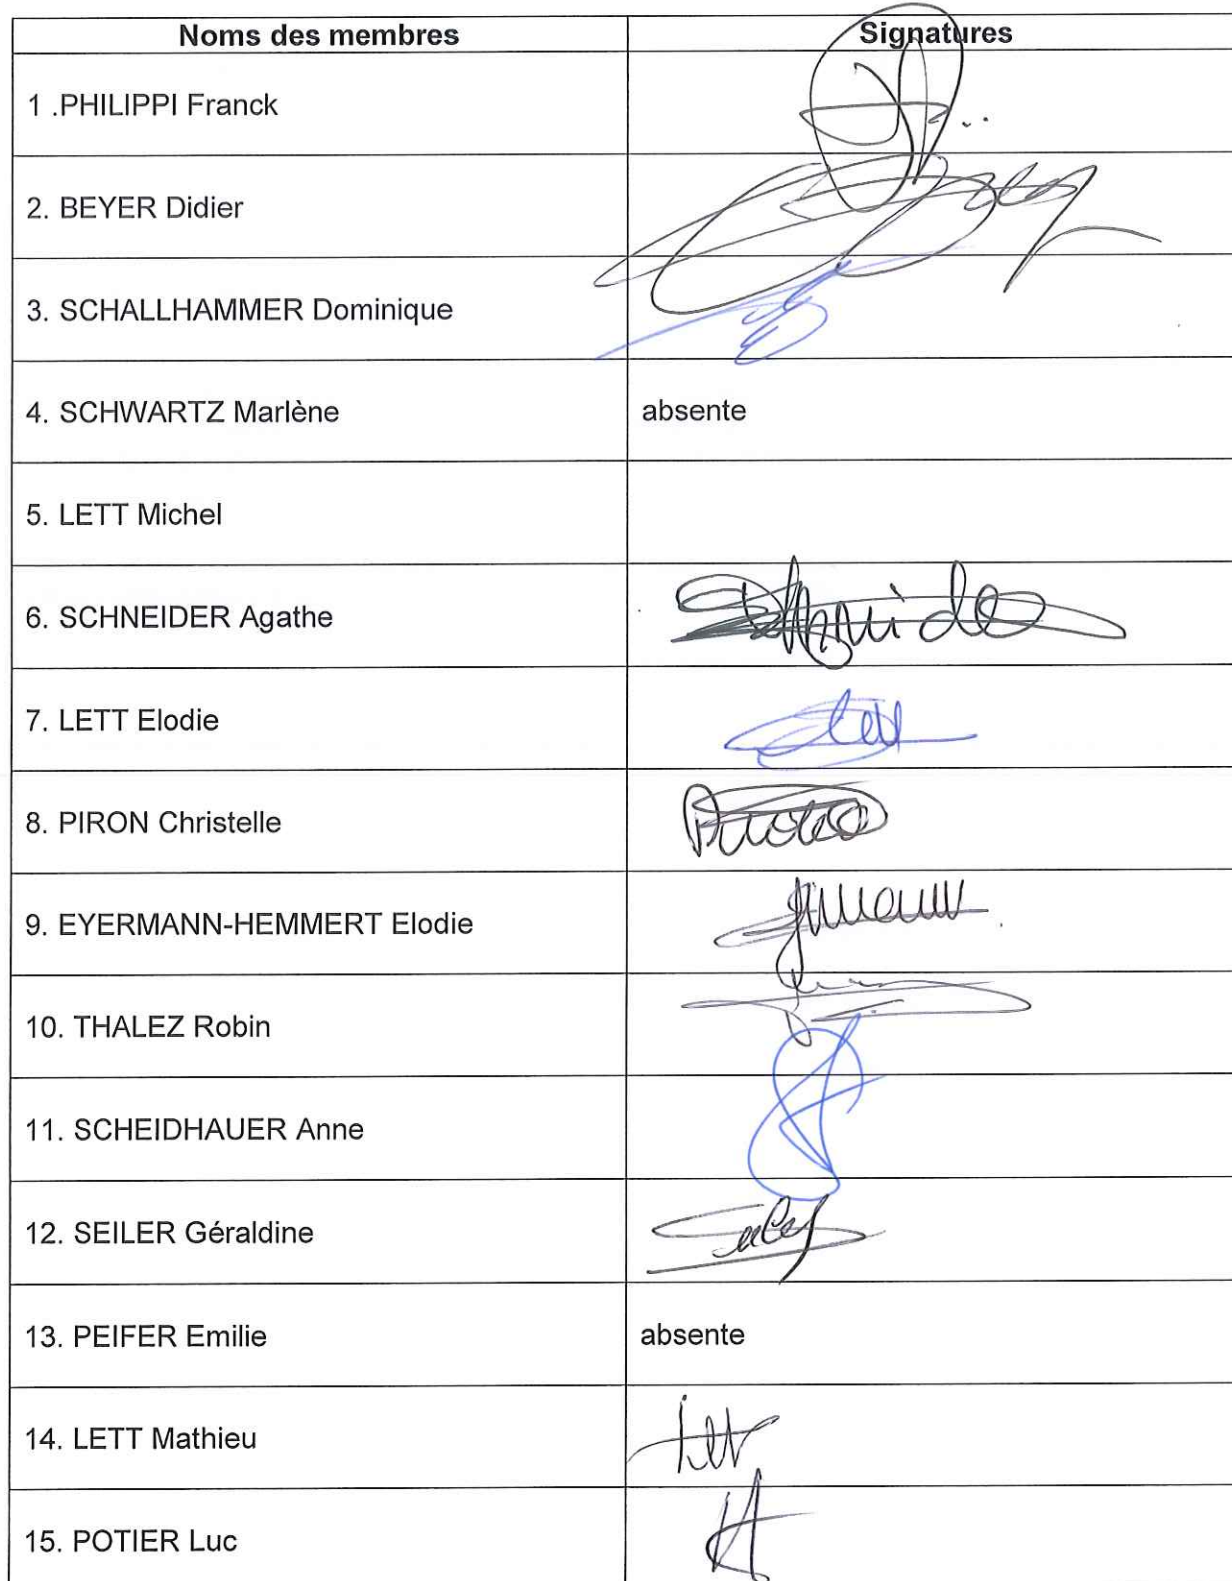 Noms des membres Signatures
1 .PHILIPPI Franck
2. BEYER Didier
3. SCHALLHAMMER Dominique
4. SCHWARTZ Marlène absente
5. LETT Michel
6. SCHNEIDER Agathe
7. LETT Elodie
8. PIRON Christelle
9. EYERMANN-HEMMERT Elodie
10. THALEZ Robin
11. SCHEIDHAUER Anne
12. SEILER Géraldine
13. PEIFER Emilie absente
14. LETT Mathieu
15. POTIER Luc